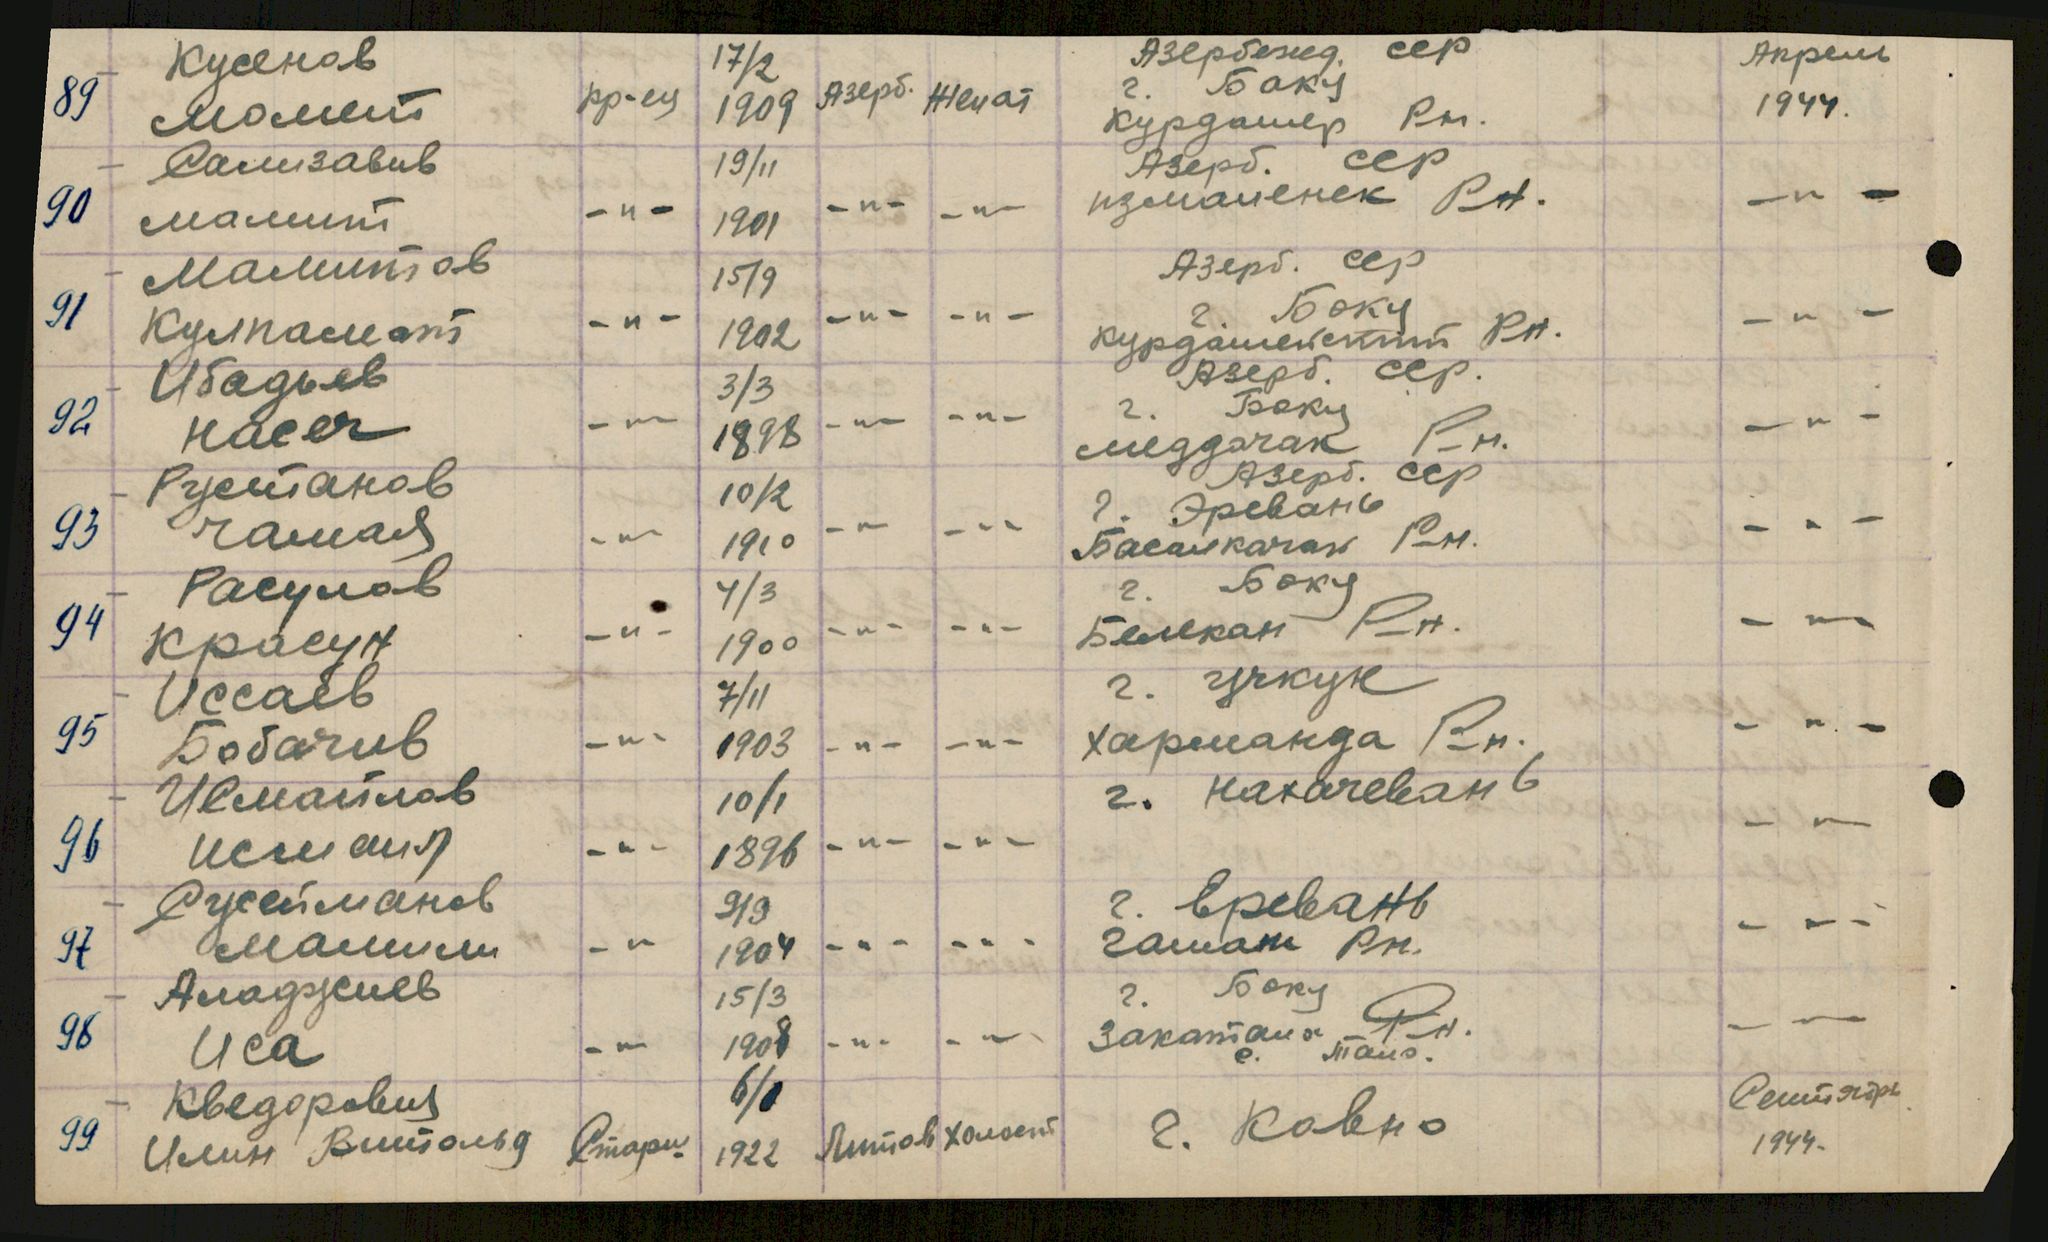 Кусенов 17/2 Азербежд. сср Апрель
89 Момет кр-ец 1909 Азерб. Женат г. Баку 1944.
Курдамер Р-н.
Сализавив 19/11 Азерб. сср
90 Мамит -"- 1901 -"- -"- измаиенек Р-н. -"-
Мамитов 15/9 Азерб. сср
91 Кулпамат -"- 1902 -"- -"- г. Баку -"-
Курдамейский Р-н.
Ибадьев 3/3 Азерб. сср.
92 Насег -"- 1898 -"- -"- г. Баку -"-
Меддачак Р-н.
Рустанов 10/2 Азерб. сср
93 Чамая -"- 1910 -"- -"- г. Эревань -"-
Басалкачан Р-н.
Расулов 4/3 г. Баку
94 Красун -"- 1900 -"- -"- Белекан Р-н. -"-
Иссаев 7/11 г. Учкун
95 Бобачив -"- 1903 -"- -"- Харманда Р-н. -"-
Исмаилов 10/1 г. Нахачевань
96 Исмаил -"- 1896 -"- -"- -"-
Сусейманов 9/9 г. Еревань
97 Мамили -"- 1904 -"- -"- Гамам Р-н. -"-
Аладжиев 15/3 г. Баку
98 Иса -"- 1908 -"- -"- Закатала Р-н. -"-
с. Тало.
Кведоровиц 6/1 Сентябрь
99 Илин Витольд Старш. 1922 Литов Холост г. Ковно 1944.